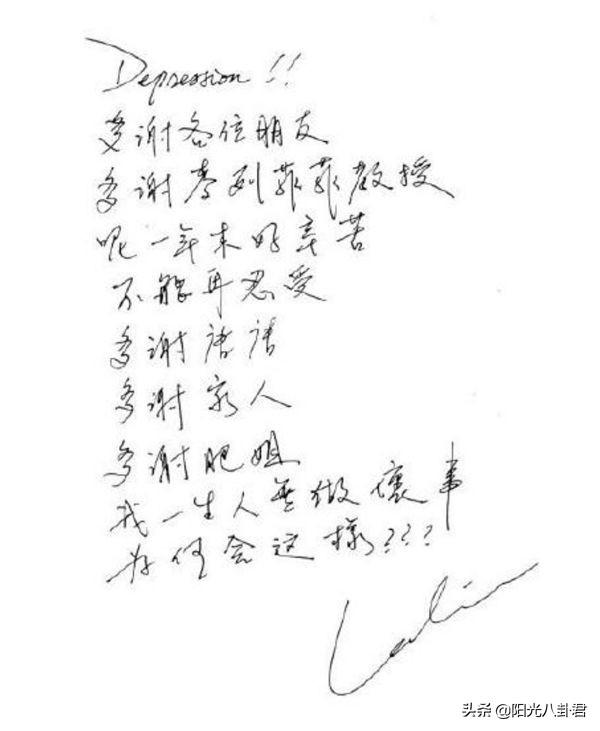 Depression!!
多谢各位朋友
多谢麦列菲菲教授
呢一年来好辛苦
不能再忍受
多谢唐唐
多谢家人
多谢肥姐
我一生人无做坏事
为何会这样???
Leslie
头条 @阳光八卦君